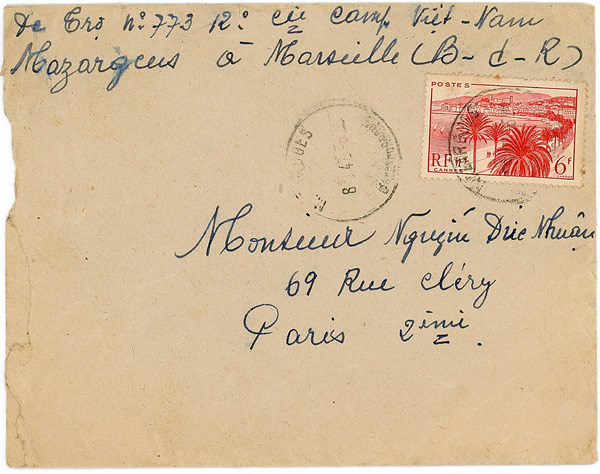 De Tro nº 773 12º cie camp Việt-Nam
Mazargues à Marseille (B-d-R)
POSTES
RF
CANNES
6F
Monsieur Nguyễn Đức Nhuận
69 Rue Cléry
Paris 2ème.